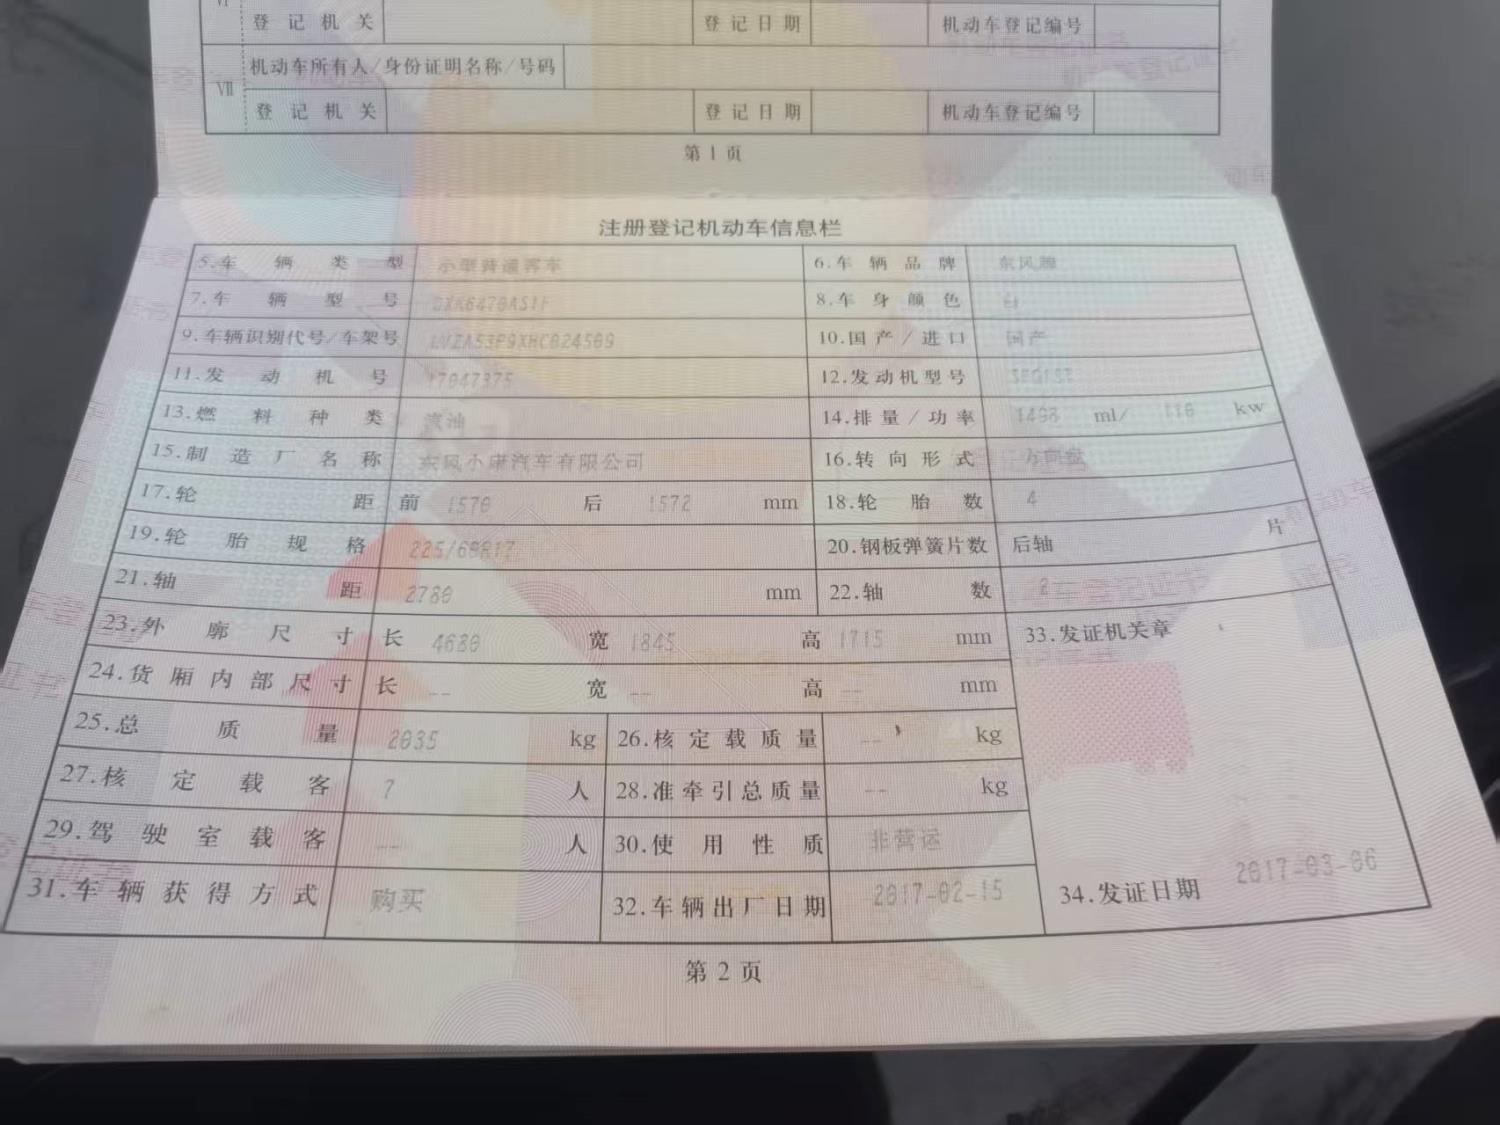 登记机关 登记日期 机动车登记编号
VII 机动车所有人/身份证明名称/号码
登记机关 登记日期 机动车登记编号
第1页
注册登记机动车信息栏
5.车辆类型 小型普通客车 6.车辆品牌 东风牌
7.车辆型号 DXK6470AS1F 8.车身颜色 白
9.车辆识别代号/车架号 10.国产/进口 国产
11.发动机号 17047375 12.发动机型号
13.燃料种类 汽油 14.排量/功率 1498 ml/ 110 kw
15.制造厂名称 东风小康汽车有限公司 16.转向形式 方向盘
17.轮距 前 1570 后 1572 mm 18.轮胎数 4
19.轮胎规格 225/60R17 20.钢板弹簧片数 后轴 片
21.轴距 2780 mm 22.轴数 2
23.外廓尺寸 长 4680 宽 1845 高 1715 mm 33.发证机关章
24.货厢内部尺寸 长 -- 宽 -- 高 -- mm
25.总质量 2035 kg 26.核定载质量 -- kg
27.核定载客 7 人 28.准牵引总质量 -- kg
29.驾驶室载客 -- 人 30.使用性质 非营运
31.车辆获得方式 购买 32.车辆出厂日期 2017-02-15 34.发证日期 2017-03-06
第2页